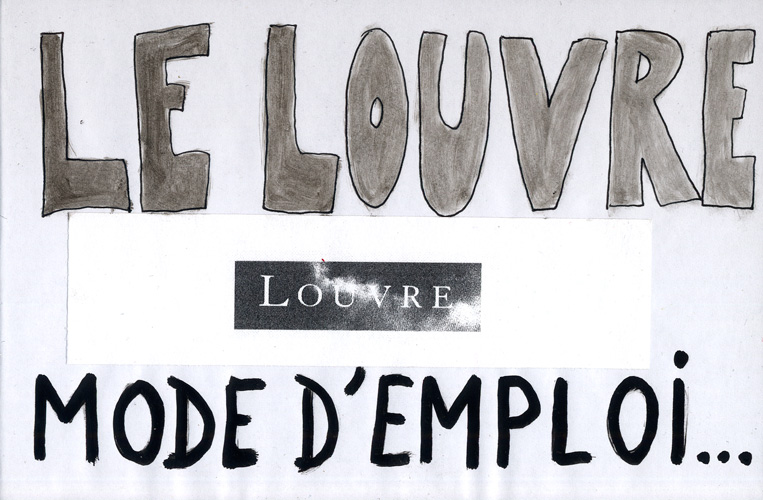 LE LOUVRE
LOUVRE
MODE D'EMPLOi...